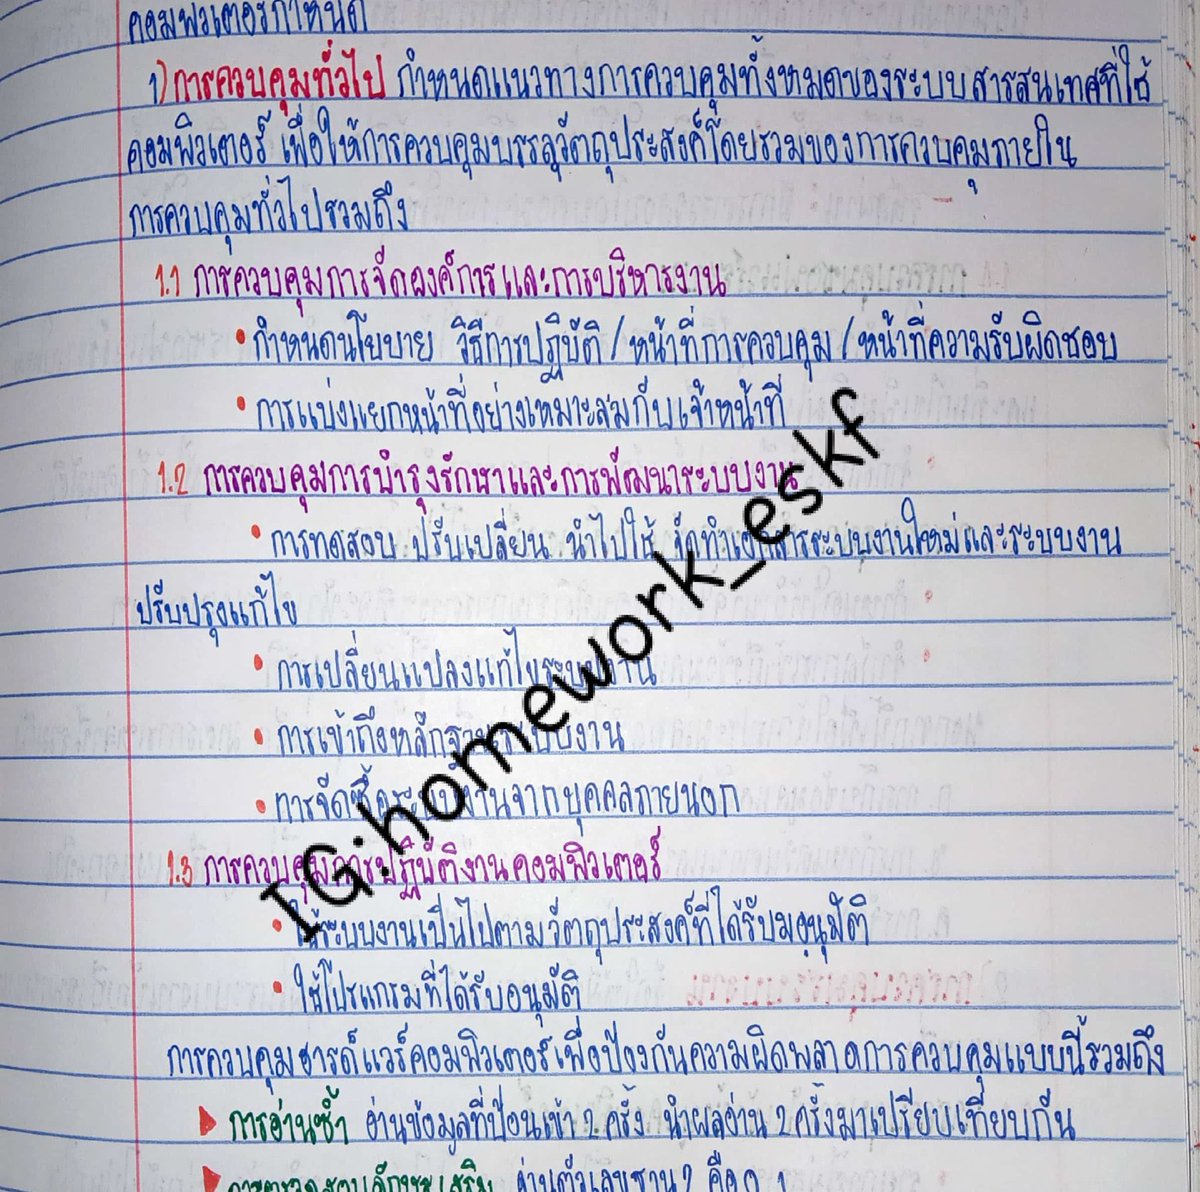 คอมพิวเตอร์กำหนด
1) การควบคุมทั่วไป กำหนดแนวทางการควบคุมทั้งหมดของระบบสารสนเทศที่ใช้
คอมพิวเตอร์ เพื่อให้การควบคุมบรรลุวัตถุประสงค์โดยรวมของการควบคุมภายใน
การควบคุมทั่วไปรวมถึง
1.1 การควบคุมการจัดองค์การและการบริหารงาน
• กำหนดนโยบาย วิธีการปฏิบัติ / หน้าที่การควบคุม / หน้าที่ความรับผิดชอบ
• การแบ่งแยกหน้าที่อย่างเหมาะสมกับเจ้าหน้าที่
1.2 การควบคุมการบำรุงรักษาและการพัฒนาระบบงาน
• การทดสอบ ปรับเปลี่ยน นำไปใช้ จัดทำเอกสารระบบงานใหม่และระบบงาน
ปรับปรุงแก้ไข
• การเปลี่ยนแปลงแก้ไขระบบงาน
• การเข้าถึงหลักฐานระบบงาน
• การจัดซื้อระบบงานจากบุคคลภายนอก
1.3 การควบคุมการปฏิบัติงานคอมพิวเตอร์
• ใช้ระบบงานเป็นไปตามวัตถุประสงค์ที่ได้รับมอนุมัติ
• ใช้โปรแกรมที่ได้รับอนุมัติ
การควบคุมฮารด์แวร์คอมพิวเตอร์เพื่อป้องกันความผิดพลาดการควบคุมแบบนี้รวมถึง
▶ การอ่านซ้ำ อ่านข้อมูลที่ป้อนเข้า 2 ครั้ง นำผลอ่าน 2 ครั้งมาเปรียบเทียบกัน
▶ การตรวจสอบลักษณะเสริม อ่านตัวเลขฐาน 2 คือ 0, 1
IG:homework_eskf